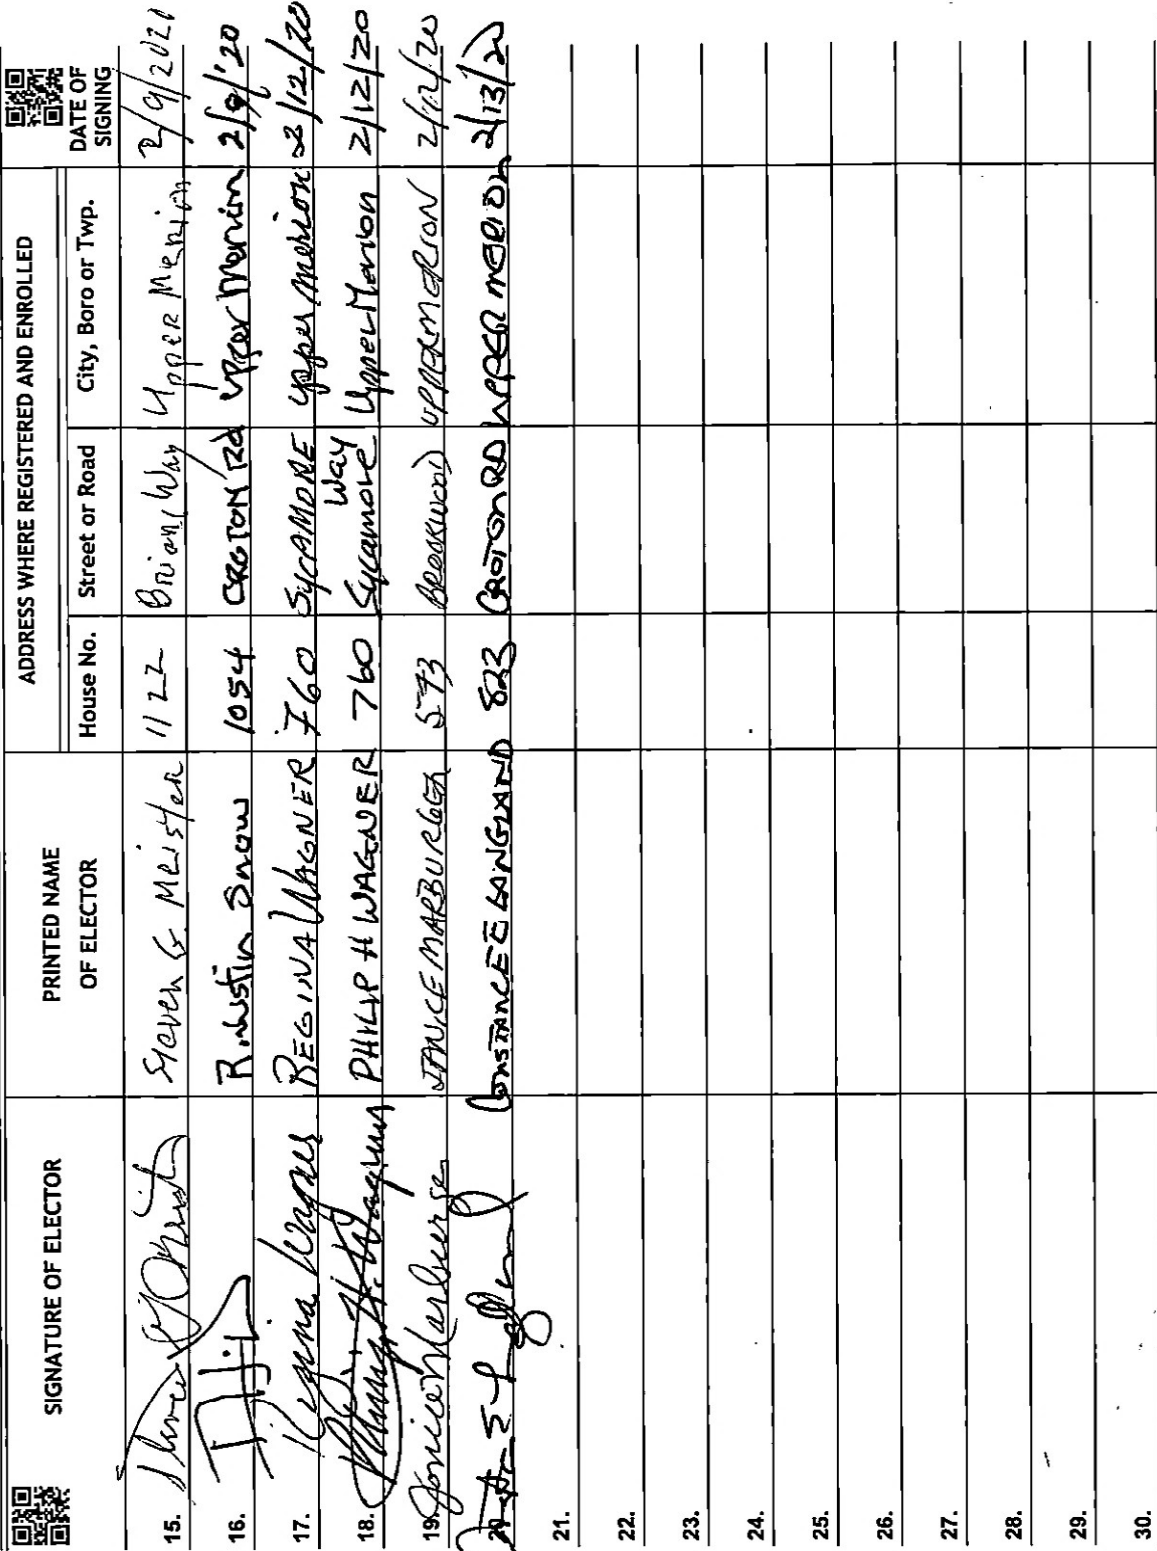 ADDRESS WHERE REGISTERED AND ENROLLED
SIGNATURE OF ELECTOR PRINTED NAME OF ELECTOR House No. Street or Road City, Boro or Twp. DATE OF SIGNING
15. Steven G. Meister 1122 Brian Way Upper Merion 2/9/2020
16. Snow 1054 CROTON Rd Upper Merion 2/9/'20
17. Regina Wagner REGINA WAGNER 760 SYCAMORE Upper Merion 2/12/20
18. Philip H. Wagner PHILIP H WAGNER 760 Sycamore Way Upper Merion 2/12/20
19. Janice Marburger JANICE MARBURGER 573 BROOKWOOD UPPER MERION 2/12/20
CONSTANCE E LANGLAND 823 CROTON RD UPPER MERION 2/13/20
21.
22.
23.
24.
25.
26.
27.
28.
29.
30.